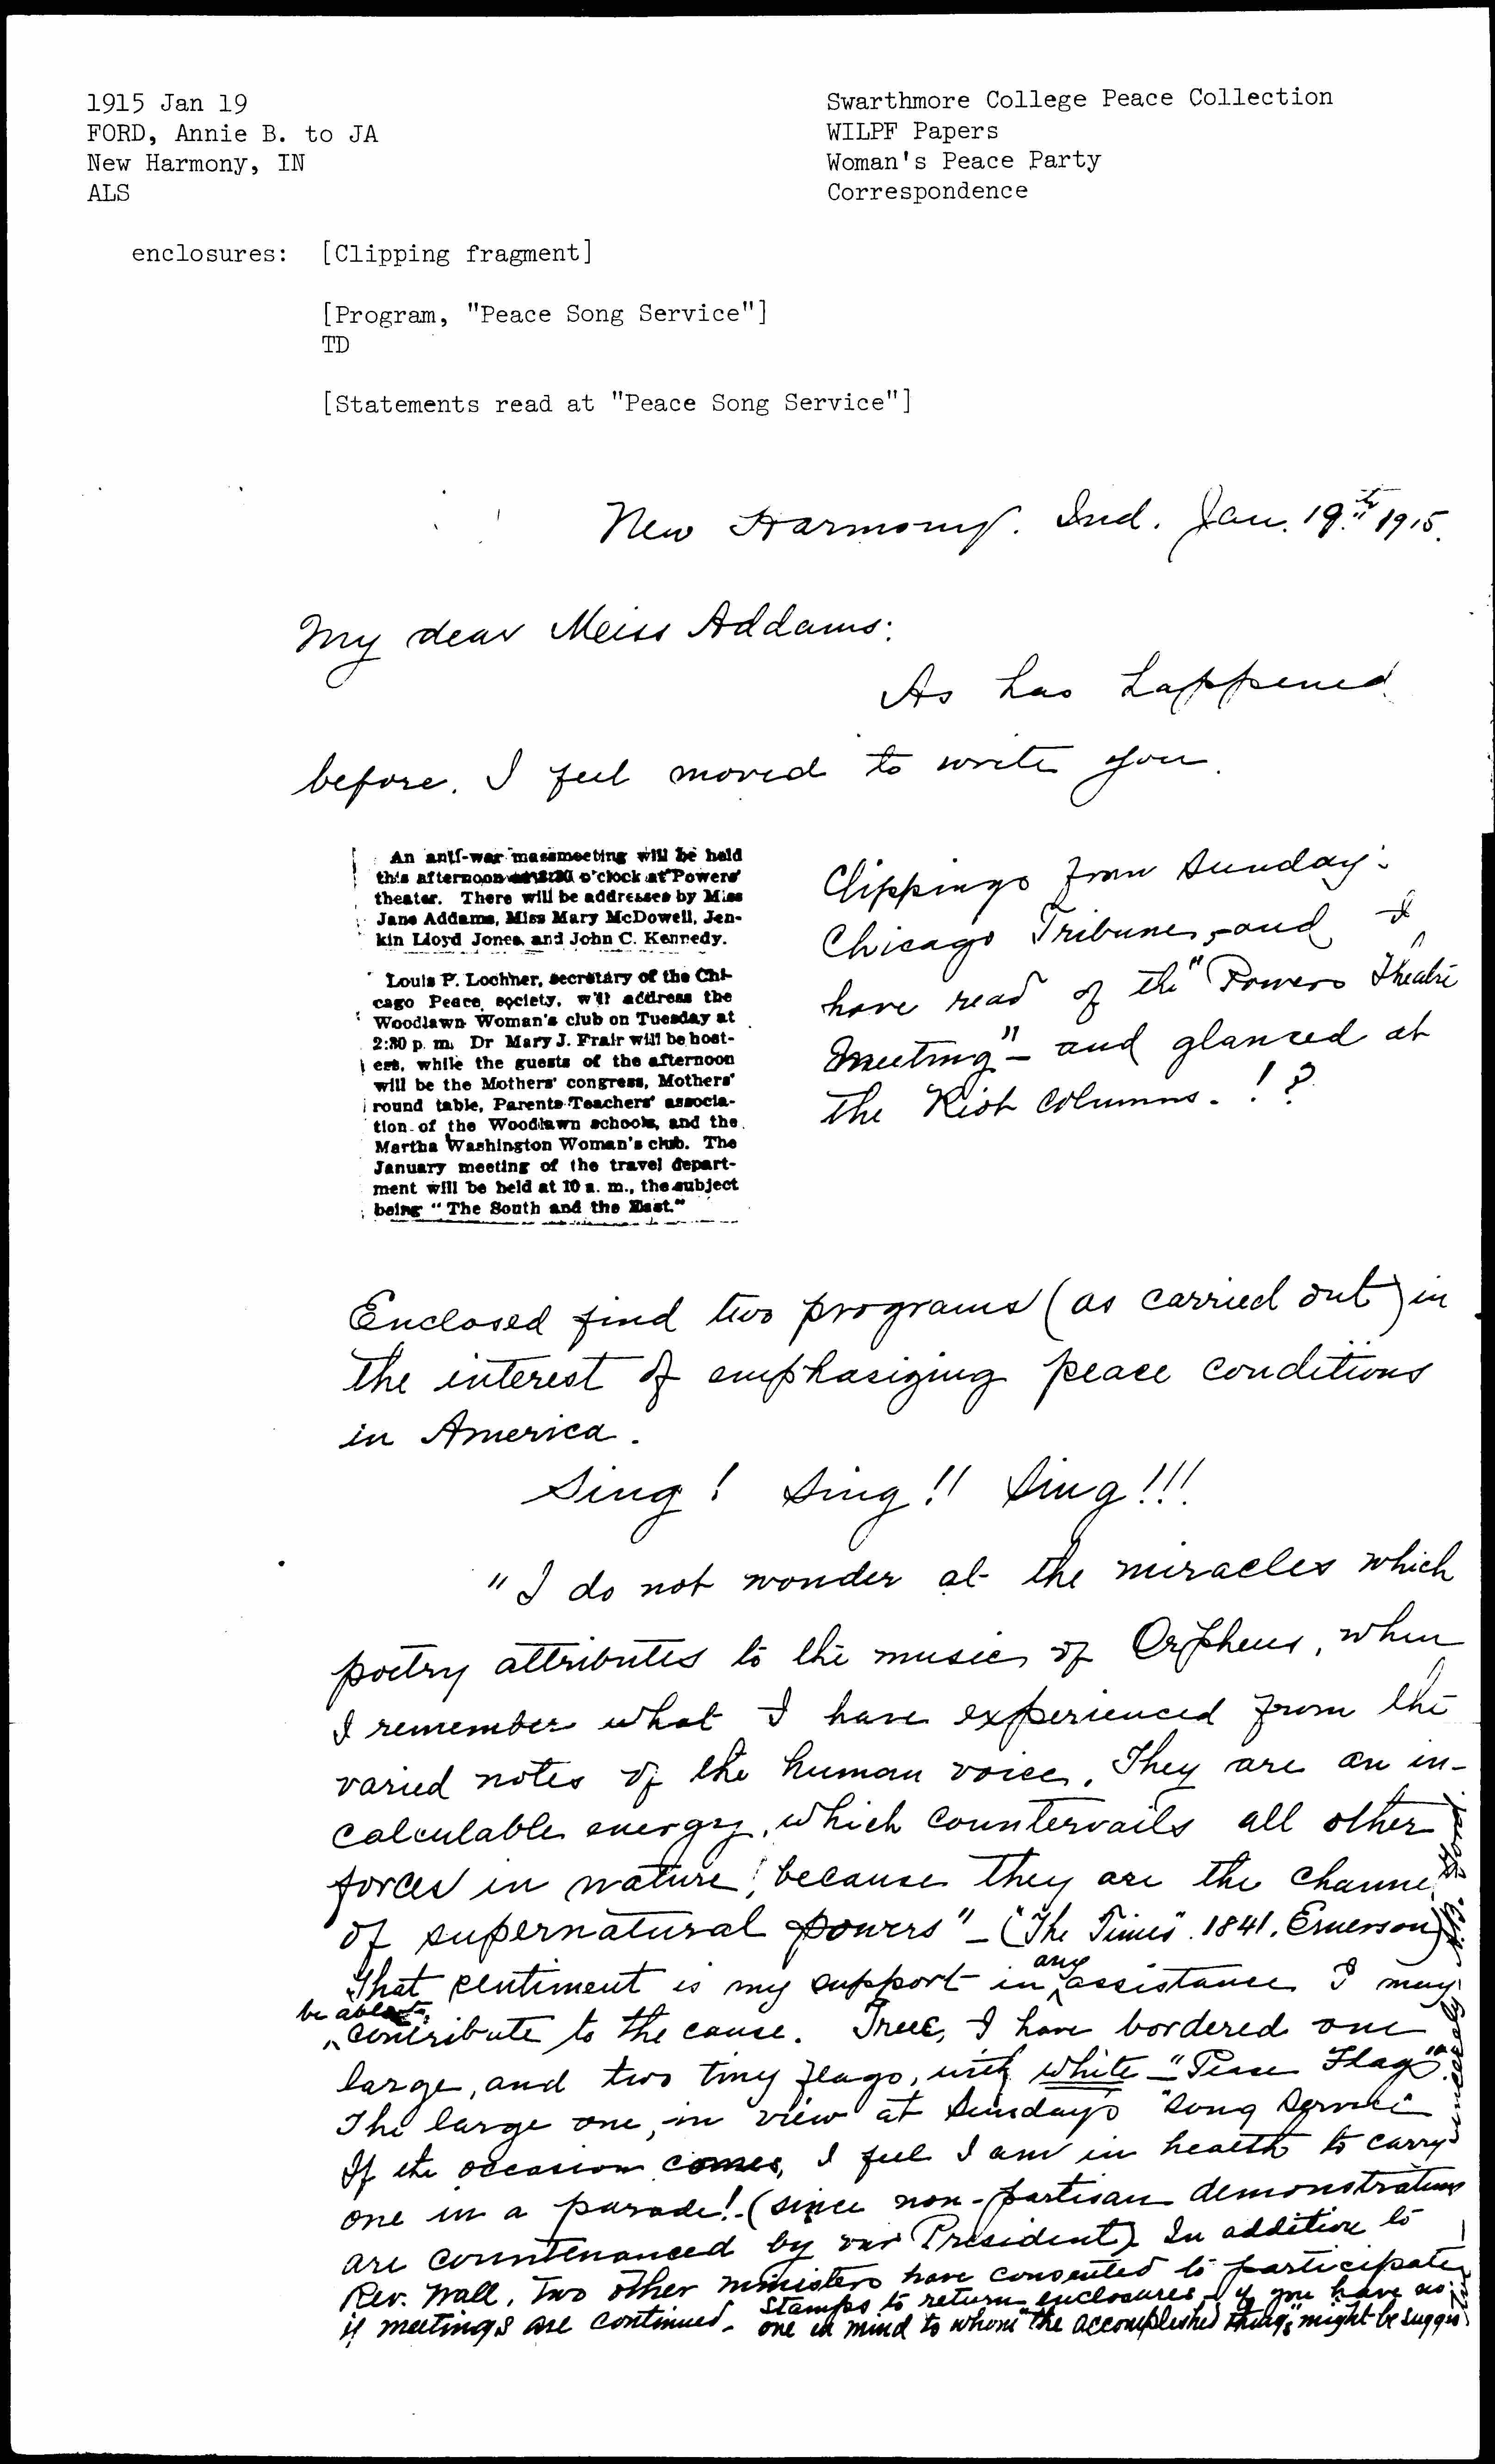 1915 Jan 19
FORD, Annie B. to JA
New Harmony, IN
ALS
Swarthmore College Peace Collection
WILPF Papers
Woman's Peace Party
Correspondence
enclosures: [Clipping fragment]
[Program, "Peace Song Service"]
TD
[Statements read at "Peace Song Service"]
New Harmony. Ind. Jan. 19th 1915.
My dear Miss Addams:
As has happened
before, I feel moved to write you.
An anti-war massmeeting will be held
this afternoon o'clock at Powers'
theater. There will be addresses by Miss
Jane Addams, Miss Mary McDowell, Jen-
kin Lloyd Jones, and John C. Kennedy.
Louis P. Lochner, secretary of the Chi-
cago Peace society, will address the
Woodlawn Woman's club on Tuesday at
2:30 p. m. Dr Mary J. Frair will be host-
ess, while the guests of the afternoon
will be the Mothers' congress, Mothers'
round table, Parents-Teachers' associa-
tion of the Woodlawn schools, and the
Martha Washington Woman's club. The
January meeting of the travel depart-
ment will be held at 10 a. m., the subject
being "The South and the East."
Clippings from Sunday:
Chicago Tribune, and I
have read of the "Powers Theatre
meeting" - and glanced at
the Riot columns. ! ?
Enclosed find two programs (as carried out) in
the interest of emphasizing peace conditions
in America.
Sing! Sing!! Sing!!!
"I do not wonder at the miracles which
poetry attributes to the music of Orpheus, when
I remember what I have experienced from the
varied notes of the human voice. They are an in-
calculable energy, which countervails all other
forces in nature, because they are the channel
of supernatural powers" - ("The Times". 1841. Emerson)
That sentiment is my support in any assistance I may
be able to contribute to the cause. True, I have bordered one
large, and two tiny flags, with white - "Peace Flags".
The large one, in view at Sunday's "Song Service"
If the occasion comes, I feel I am in health to carry
one in a parade! - (since non-partisan demonstrations
are countenanced by our President). In addition to
Rev. Wall, two other ministers have consented to participate
if meetings are continued. Stamps to return enclosures, if you have no
one in mind to whom "the accomplished things" might be
Sincerely A.B. Ford